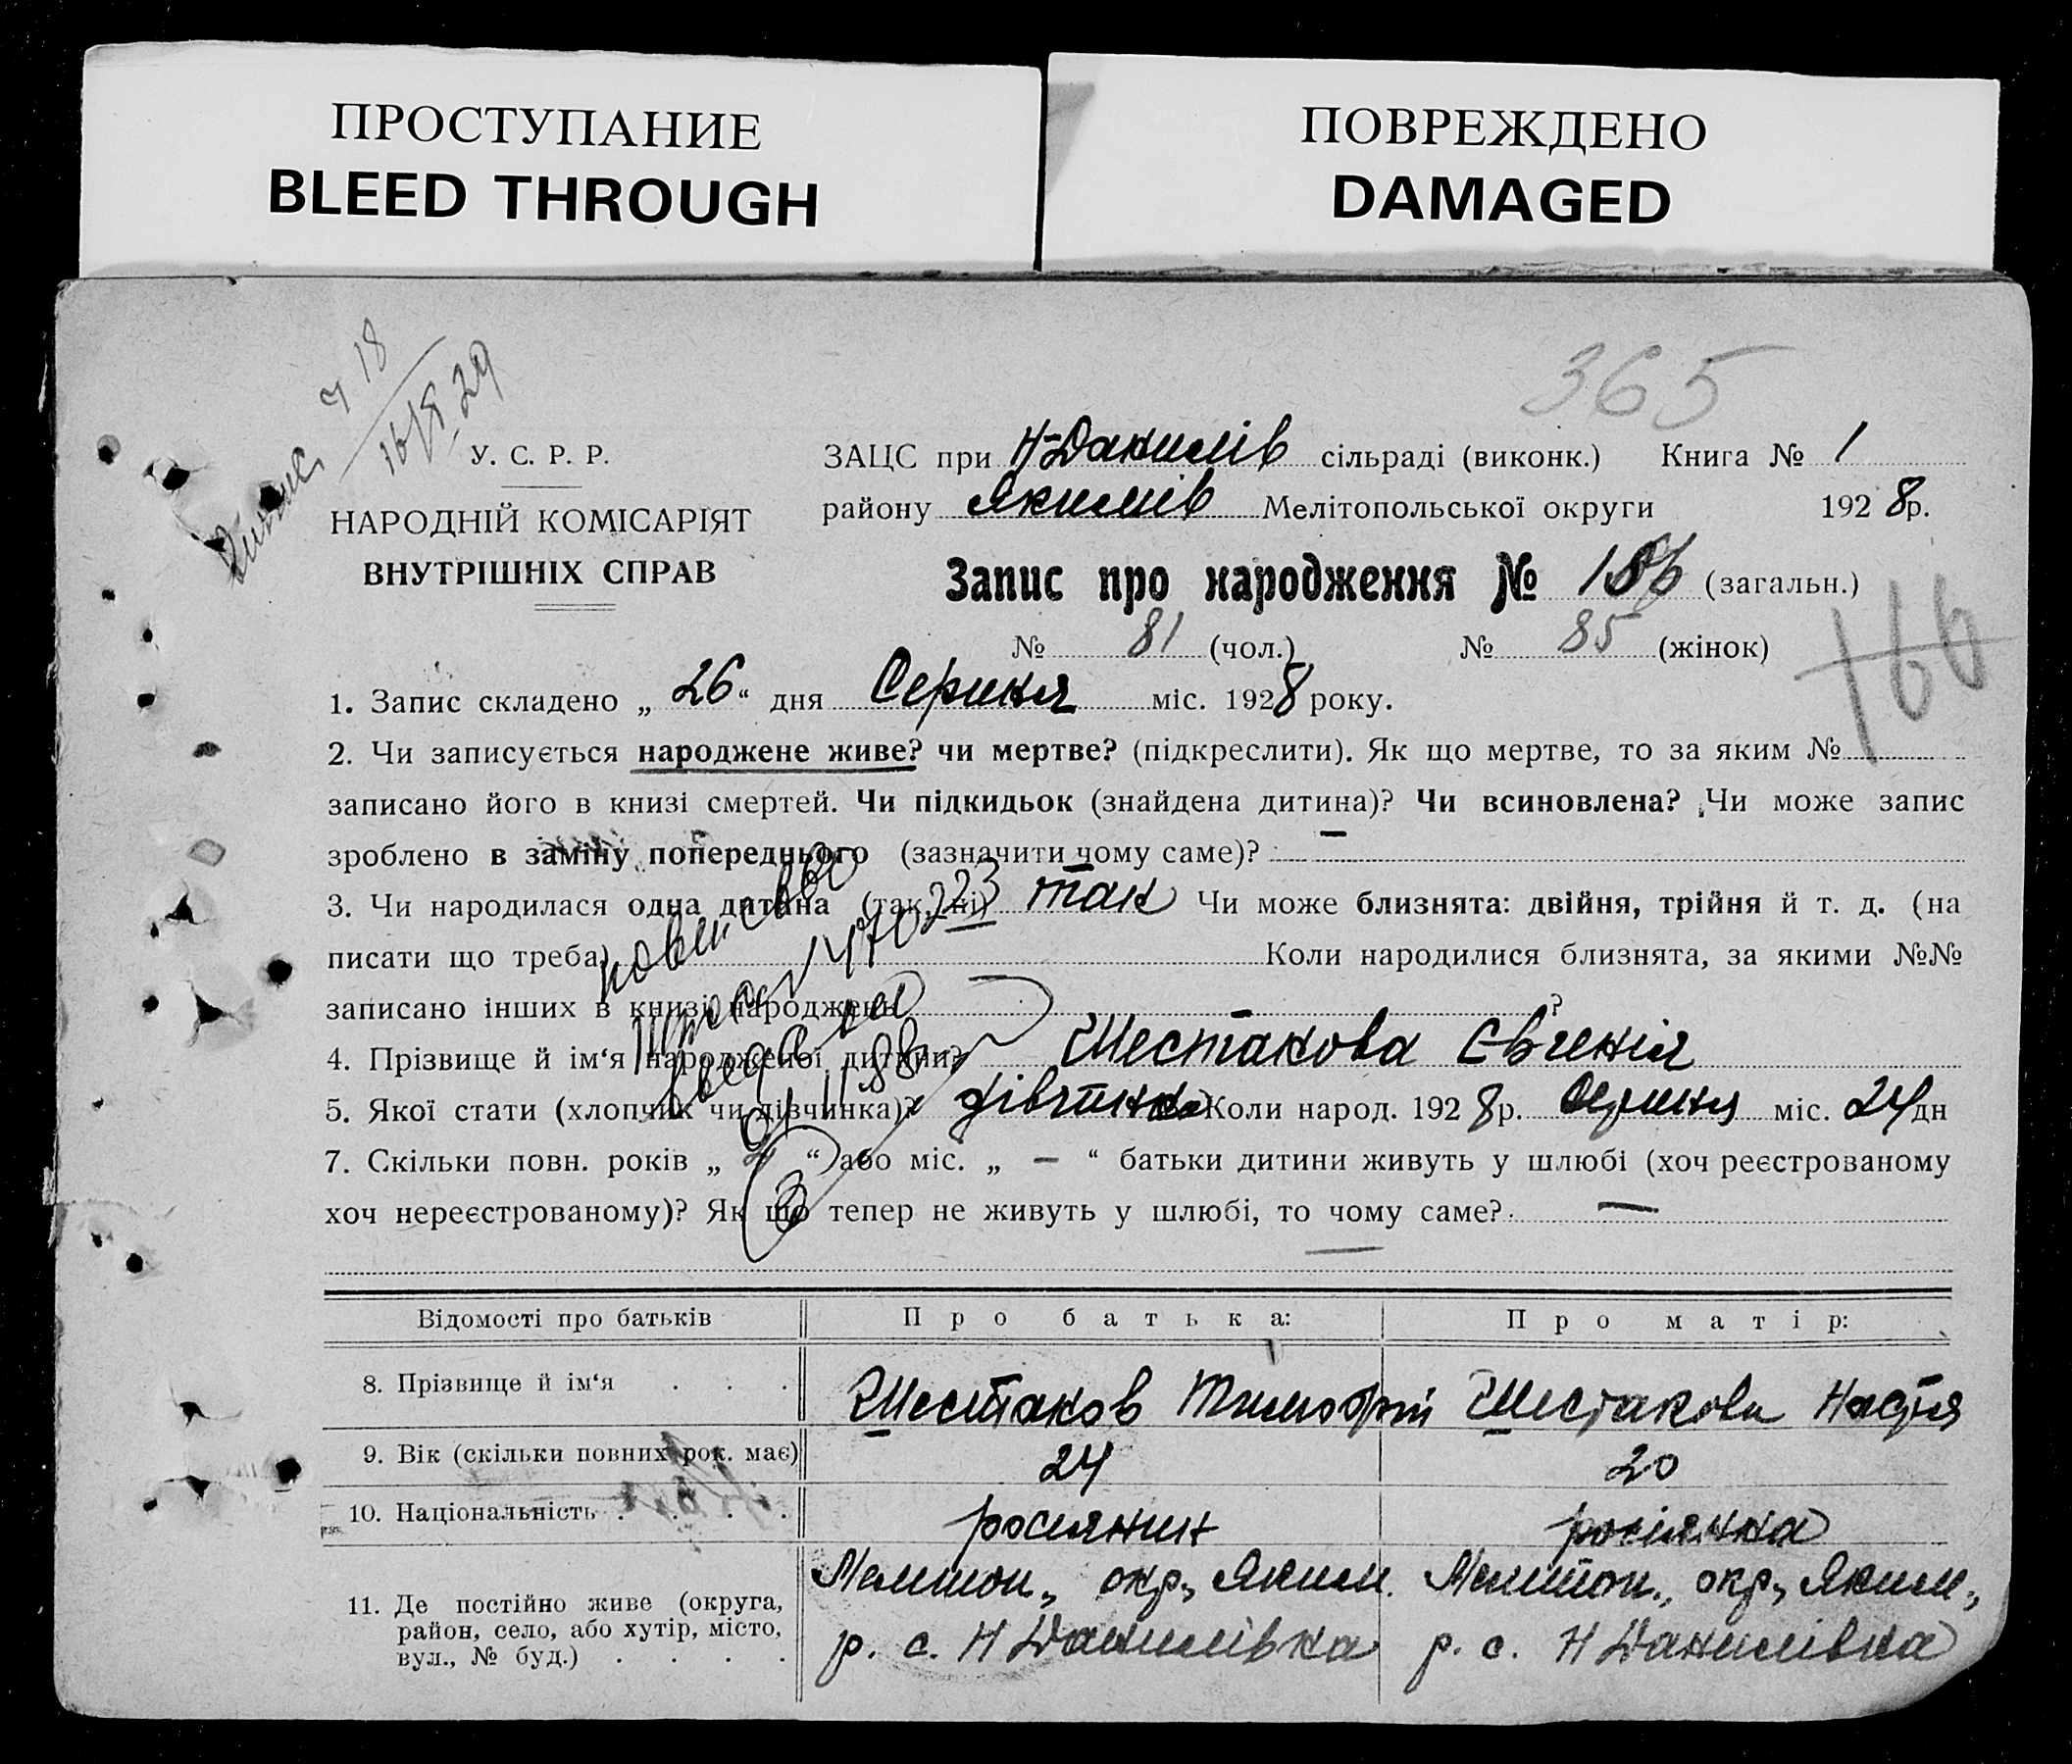 ПРОСТУПАНИЕ
BLEED THROUGH
ПОВРЕЖДЕНО
DAMAGED
365
ч 18
16/Х 29
У. С. Р. Р.
НАРОДНІЙ КОМІСАРІЯТ
ВНУТРІШНІХ СПРАВ
ЗАЦС при Н-Данилів сільраді (виконк.) Книга № 1
району Якимів Мелітопольської округи 1928р.
Запис про народження № (загальн.)
166
№ 81 (чол.) № 85 (жінок)
1. Запис складено „ 26 “ дня Серпня міс. 1928 року.
2. Чи записується народжене живе? чи мертве? (підкреслити). Як що мертве, то за яким №
записано його в книзі смертей. Чи підкидьок (знайдена дитина)? Чи всиновлена? Чи може запис
зроблено в заміну попереднього (зазначити чому саме)? —
3. Чи народилася одна дитина (так, ні) так Чи може близнята: двійня, трійня й т. д. (на
писати що треба) Коли народилися близнята, за якими №№
записано інших в книзі народжень ?
4. Прізвище й ім‘я народженої дитини? Шестакова Євгенія
5. Якої стати (хлопчик чи дівчинка)? дівчинка Коли народ. 1928р. Серпня міс. 24 дн
7. Скільки повн. років „ “ або міс. „ — “ батьки дитини живуть у шлюбі (хоч реєстрованому
хоч нереєстрованому)? Як що тепер не живуть у шлюбі, то чому саме? —
Відомості про батьків Про батька: Про матір:
8. Прізвище й ім‘я . . . Шестаков Тимофій Шестакова Настя
9. Вік (скільки повних рок. має) 24 20
10. Національність . . . . росиянин росіянка
11. Де постійно живе (округа, район, село, або хутір, місто, вул., № буд.) . . . .
Мелітоп., окр., Яким. Мелітоп., окр., Яким.,
р. с. Н Данилівка р. с. Н Данилівка